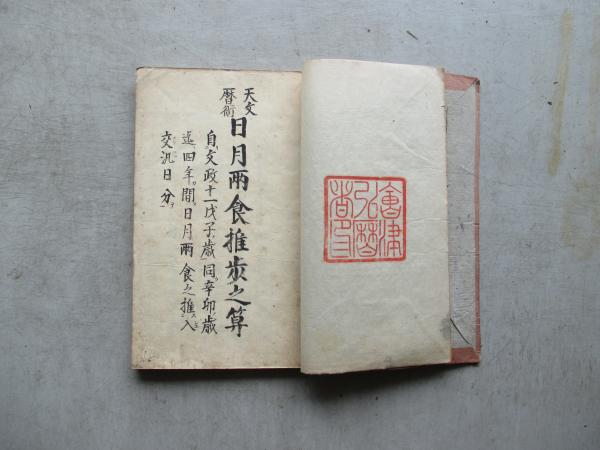 會津
弘暦
者印
天文
暦術
日月兩食推歩之算
自文政十一戊子歳同辛卯歳
迄四年間日月兩食之推入
交汎日分